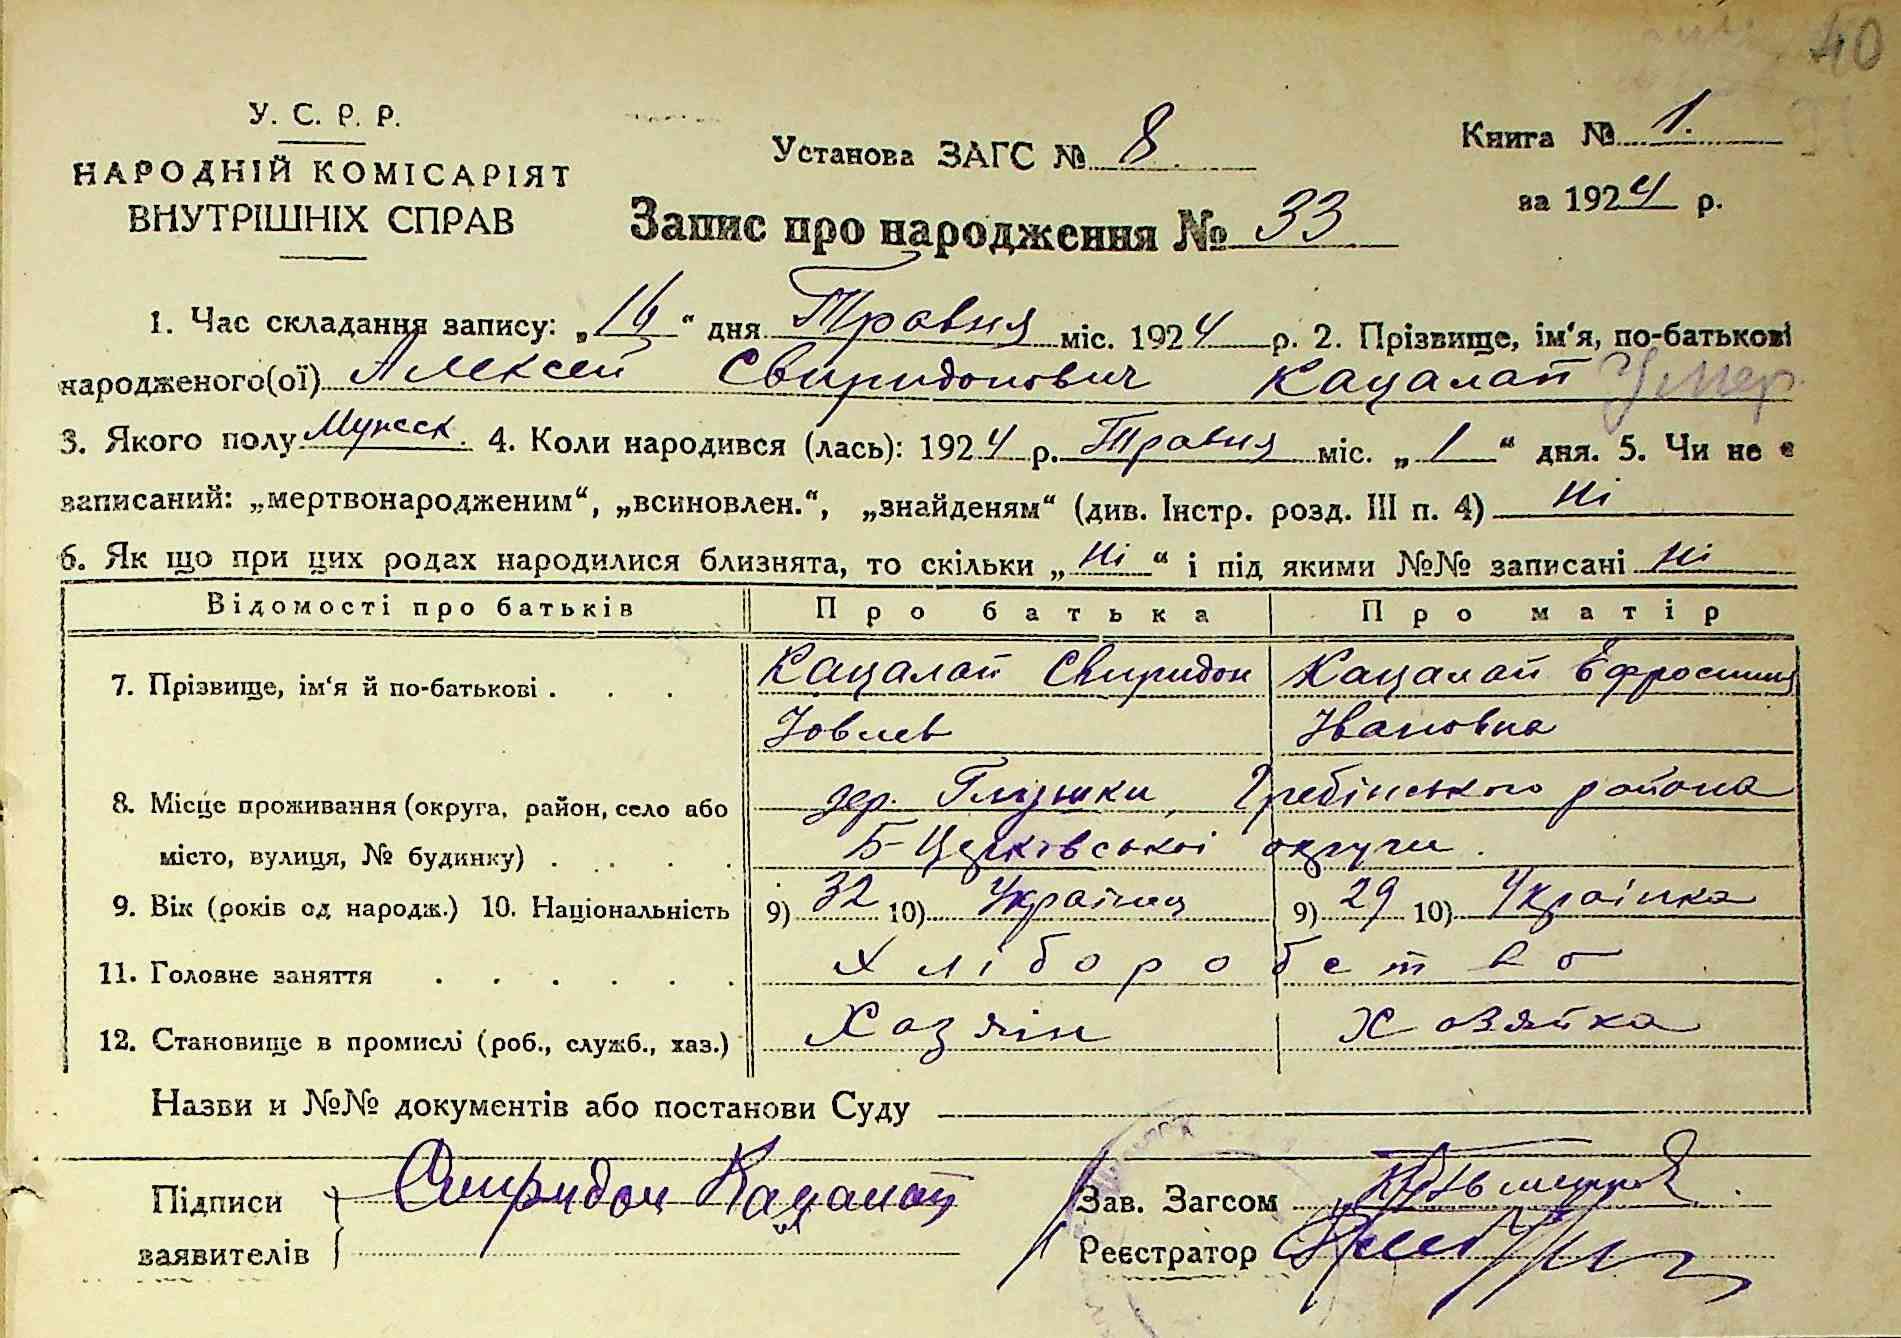 40
У. С. Р. Р.
НАРОДНІЙ КОМІСАРІЯТ
ВНУТРІШНІХ СПРАВ
Установа ЗАГС № 8
Книга № 1.
за 1924 р.
Запис про народження № 33
1. Час складання запису: „16“ дня Травня міс. 1924 р. 2. Прізвище, ім‘я, по-батькові
народженого(ої) Алексей Свиридонович Кацалап Умер
3. Якого полу Мужеск. 4. Коли народився (лась): 1924 р. Травня міс. „1“ дня. 5. Чи не є
записаний: „мертвонародженим“, „всиновлен.“, „знайденям“ (див. Інстр. розд. III п. 4) Ні
6. Як що при цих родах народилися близнята, то скільки „Ні“ і під якими №№ записані Ні
Відомості про батьків Про батька Про матір
7. Прізвище, ім‘я й по-батькові . . . Кацалап Свиридон Кацалап Ефросиния
Іовлев Івановна
8. Місце проживання (округа, район, село або дер. Глушки, Гребінського района
місто, вулиця, № будинку) . . . . Б-Церковської округи.
9. Вік (років од народж.) 10. Національність 9) 32 10) Українец 9) 29 10) Українка
11. Головне заняття . . . . . . Хліборобство
12. Становище в промислі (роб., служб., хаз.) Хозяін Хозяйка
Назви и №№ документів або постанови Суду
Підписи Спиридон Кацалап Зав. Загсом
заявителів Реєстратор